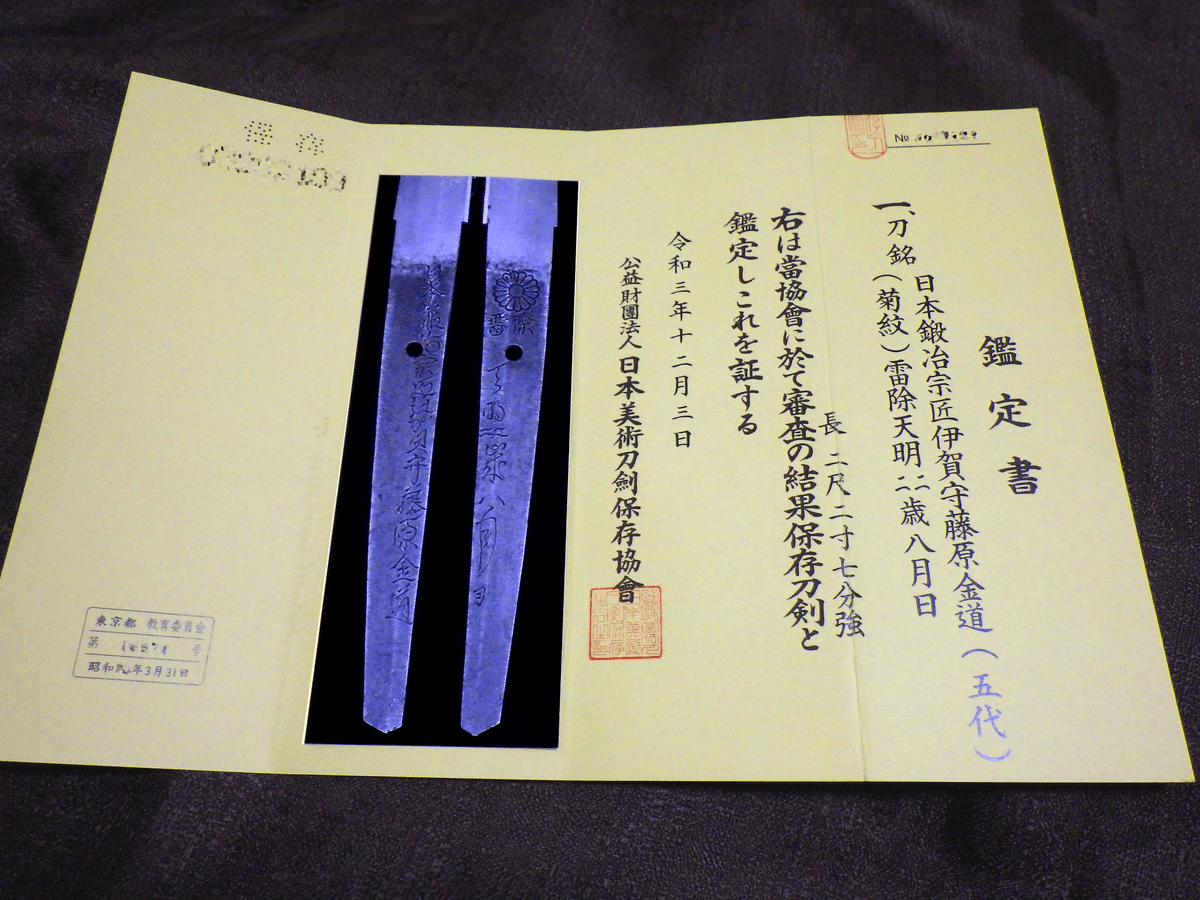 鑑定書
一、刀 銘 日本鍛冶宗匠伊賀守藤原金道(五代)
(菊紋)雷除天明二二歳八月日
長 二尺二寸七分強
右は當協會に於て審査の結果保存刀剣と
鑑定しこれを証する
令和三年十二月三日
公益財團法人 日本美術刀劍保存協會
№
保存
藤原金道
東京都 教育委員会
第 号
昭和 年3月31日